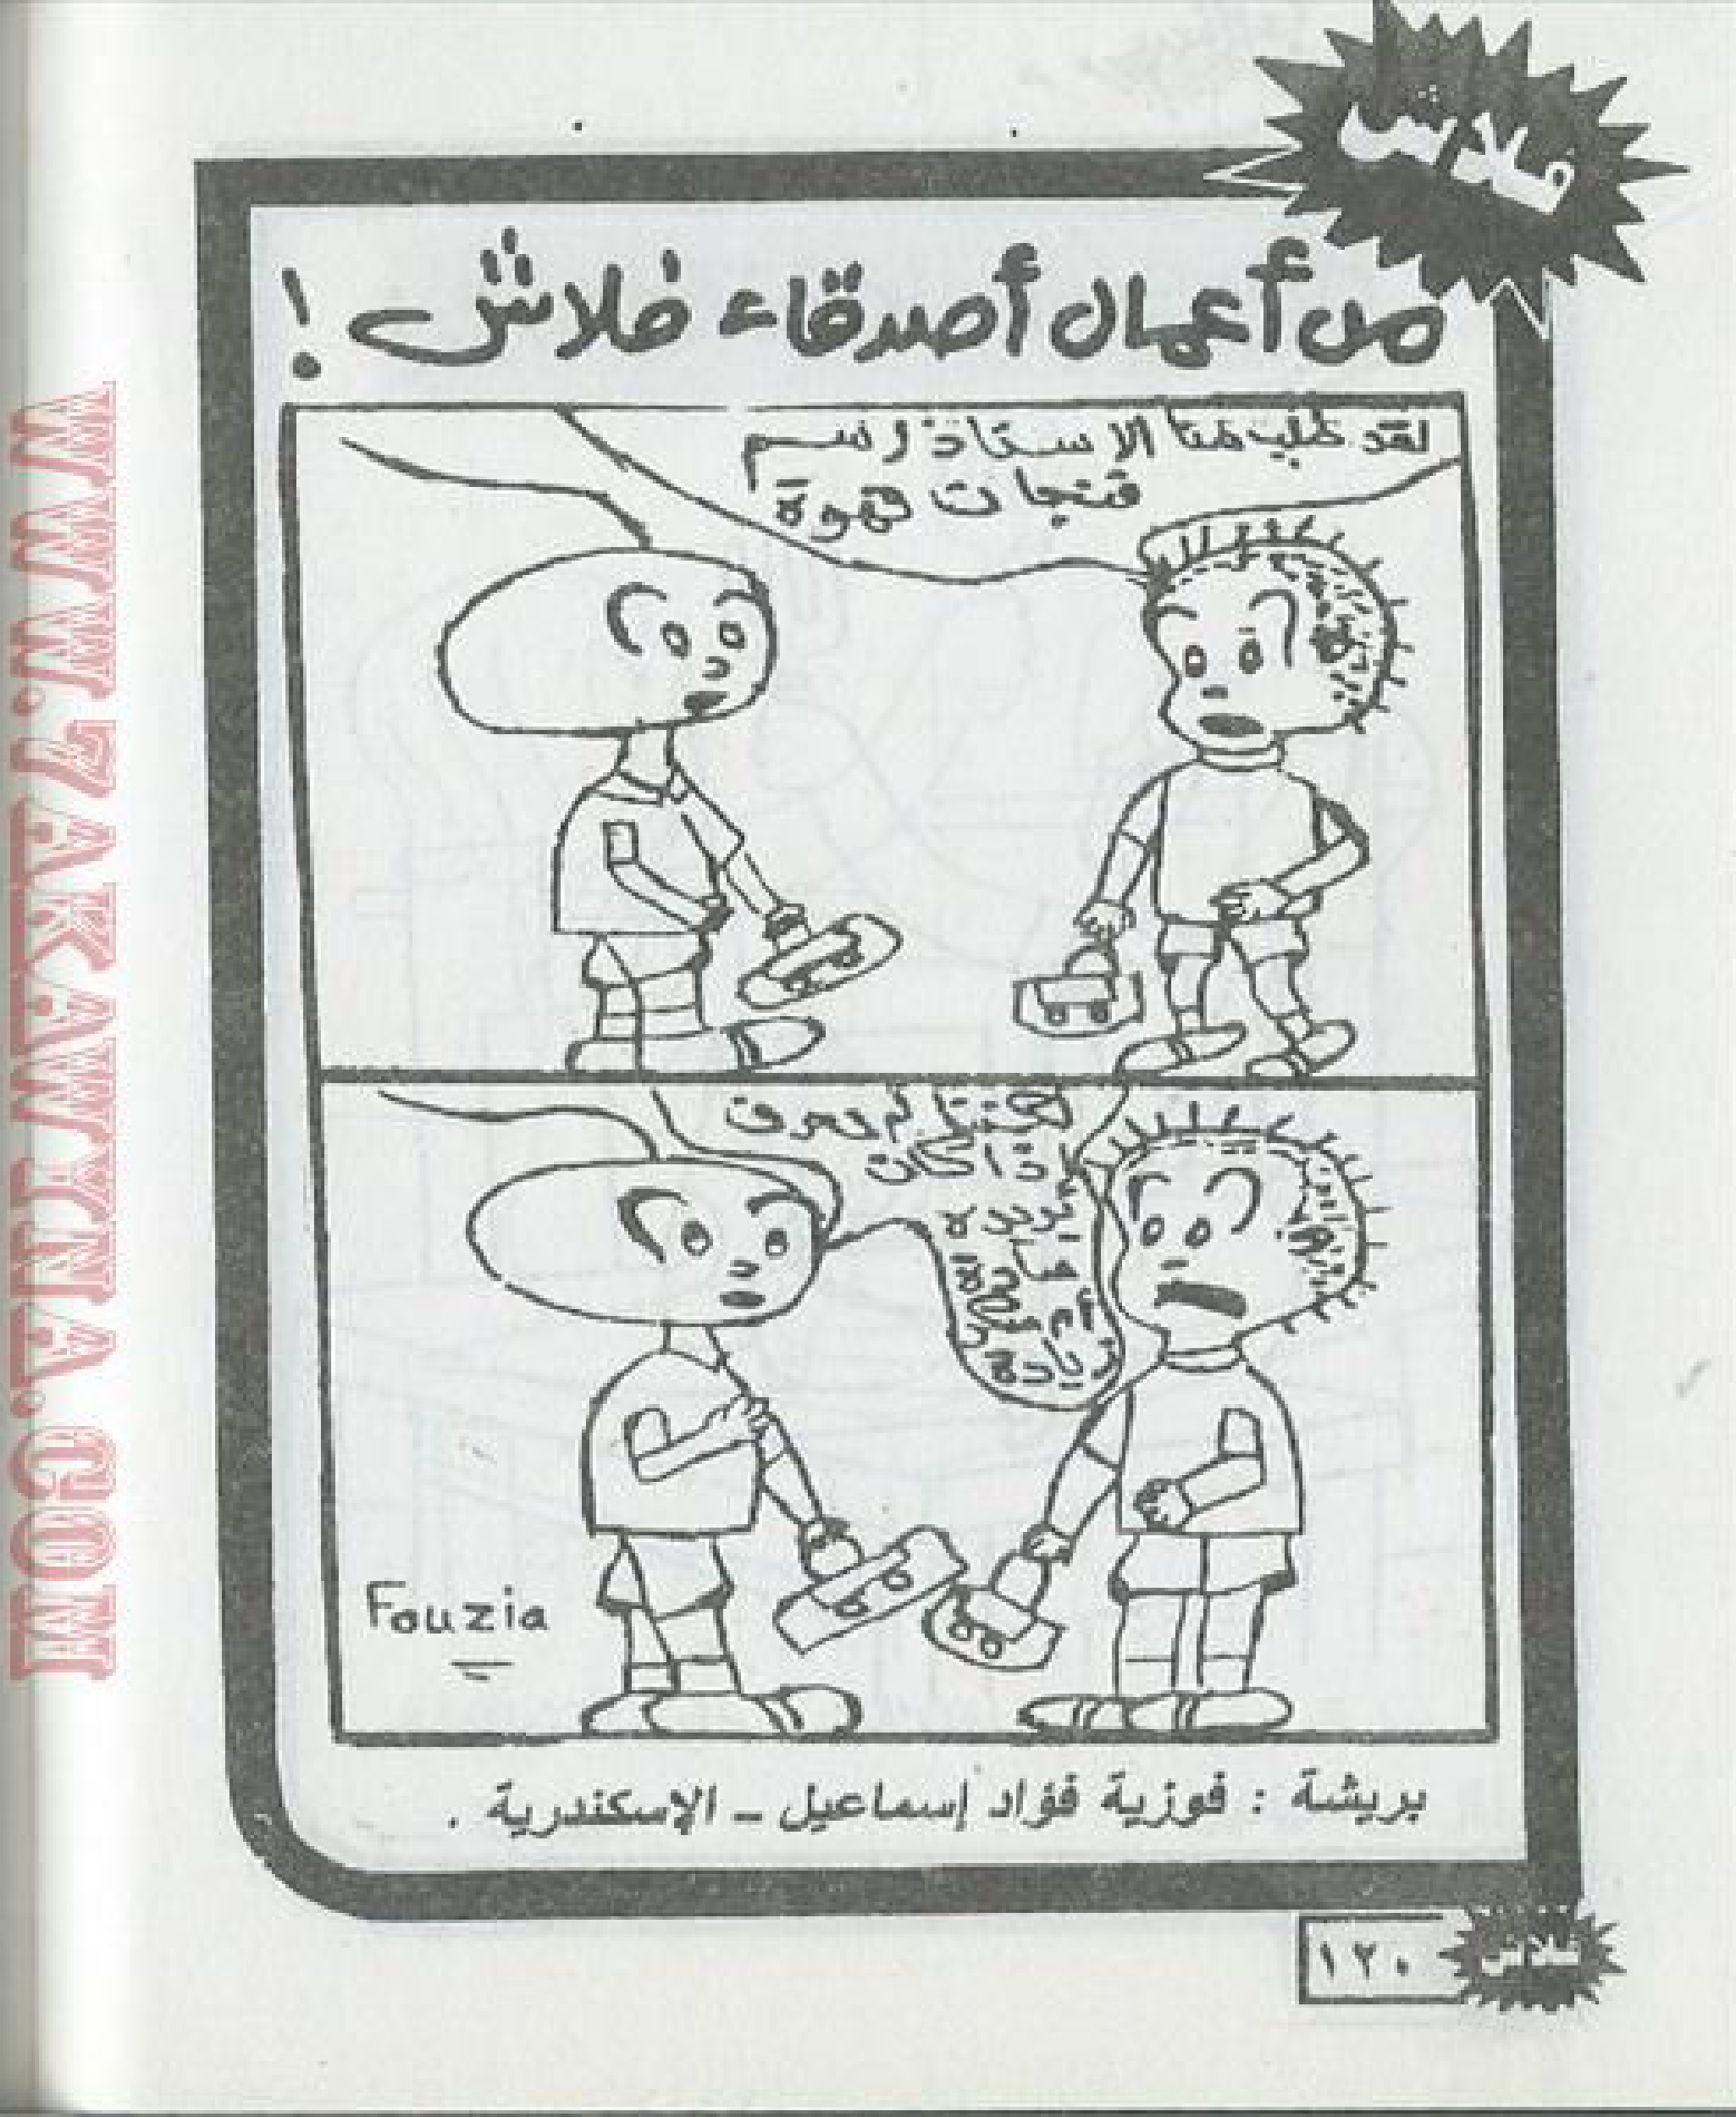 فلاش
من أعمال أصدقاء فلاش !
لقد طلب منا الاستاذ رسم
فنجات قهوة
لكننا لم نعرف
اذا كان
يريده
Fouzia
بريشة : فوزية فؤاد إسماعيل – الإسكندرية .
١٢٠
فلاش
WWW.7AKAWYNA.COM